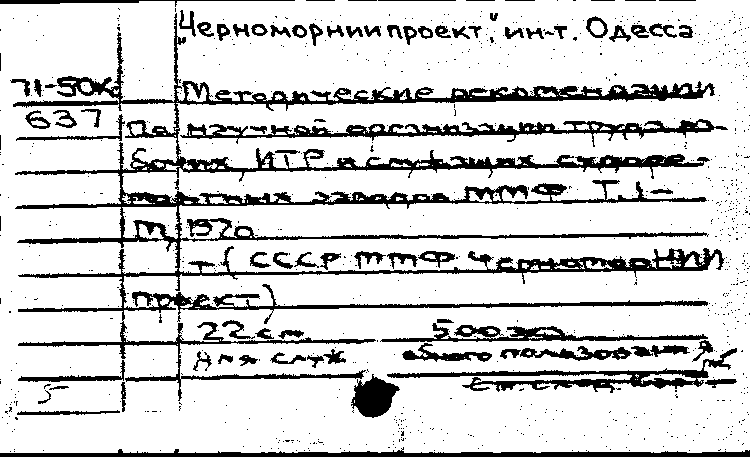 "Черноморниипроект", ин-т. Одесса
71-50Ка Методические рекомендации
637 по научной организации труда ра-
бочих, ИТР и служащих судоре-
монтных заводов ММФ Т.1-
М, 1970
т (СССР ММФ. ЧерноморНИИ
проект)
22 см. 500 экз.
Для служ ебного пользования
См. след. карт.
5